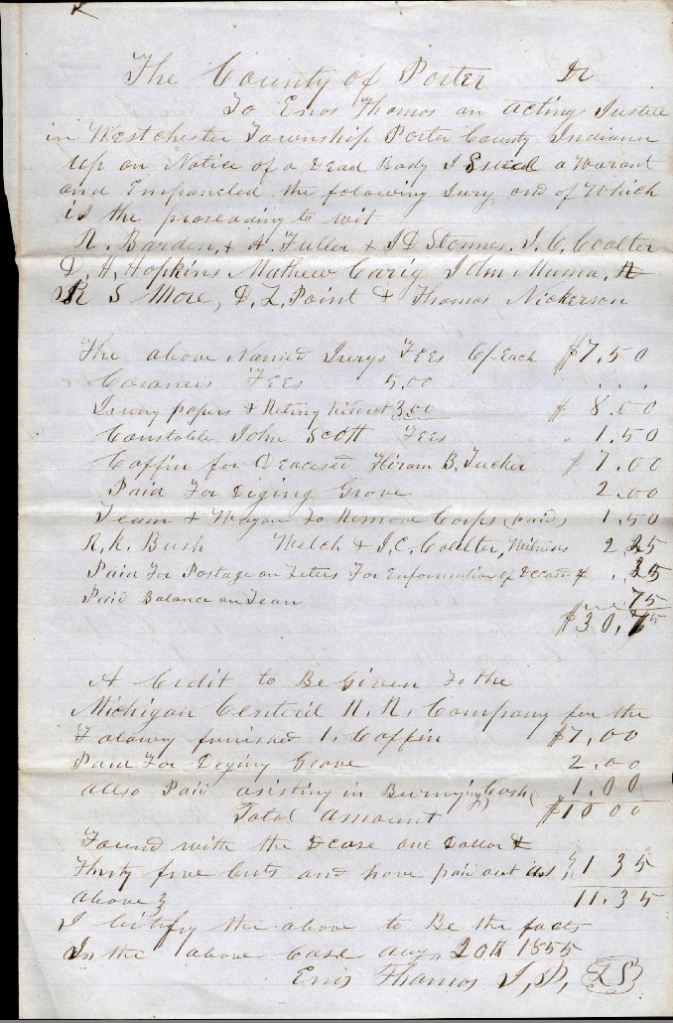 The County of Porter Dr
To Enos Thomas an acting Justice
in Westchester Township Porter County Indiana
up on Notice of a Dead Body I Sued a Warant
and Empaneled the folowing Jury and of Which
is the proseading to wit
R. Barden, & A. Fuller & J D Stonnes. J. C. Coalter
D. H. Hopkins Mathew Carig John Muma,
R S More, D. L. Point & Thomas Nickerson
The above Named Jurys Fees Each $7.50
Coroners Fees 5.00
Isuing papers & 3.00 $ 8.00
Constable John Scott Fees 1.50
Coffin for Deacesed Hiram B. Tucker $ 7.00
Paid For Diging Grove 2.00
Team & Wagon to Remove Corps (paid) 1.50
R. R. Bush Welch & J. C. Coalter, Witness 2 25
Paid For Postage on Leters For Enformation of 25
Paid Balance on Team 75
$30,75
A Credit to Be Given To the
Michigan Centeril R. R. Company for the
Folowing furnished 1. Coffin $7,00
Paid For Diging Grove 2.00
allso Paid asisting in Burrying Cash 1.00
Total amount $10 00
Found with the Decase one Dallor &
Thirty five Cents and have paid out as 1 35
above 11.35
I certify the above to Be the facts
In the above Case Aug 20th 1855
Enis Thamos J, P, LS